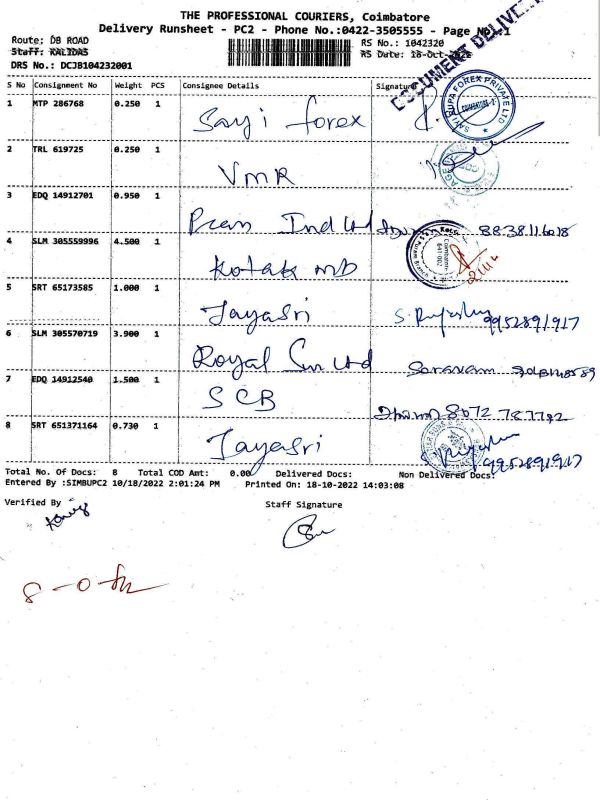 THE PROFESSIONAL COURIERS, Coimbatore
Delivery Runsheet - PC2 - Phone No.:0422-3505555 - Page No.:1
DOCUMENT DELIVERY
Route: DB ROAD
RS No.: 1042320
Staff: KALIDAS
RS Date: 18-Oct-2022
DRS No.: DCJB104232001
S No Consignment No Weight PCS Consignee Details Signature
1 MTP 286768 0.250 1 Sayi forex
SAYI RUPA FOREX PRIVATE LTD
COIMBATORE
2 TRL 619725 0.250 1 VMR
3 EDQ 14912701 0.950 1 Ind Ltd
4 SLM 305559996 4.500 1 Kotak MB
Coimbatore
5 SRT 65173585 1.000 1 Jayasri S. 9952891917
6 SLM 305570719 3.900 1 Royal Sun Ltd
7 EDQ 14912540 1.500 1 SCB
8 SRT 651371164 0.730 1 Jayasri 9952891917
Total No. Of Docs: 8 Total COD Amt: 0.00 Delivered Docs: Non Delivered Docs:
Entered By :SIMBUPC2 10/18/2022 2:01:24 PM Printed On: 18-10-2022 14:03:08
Verified By Staff Signature